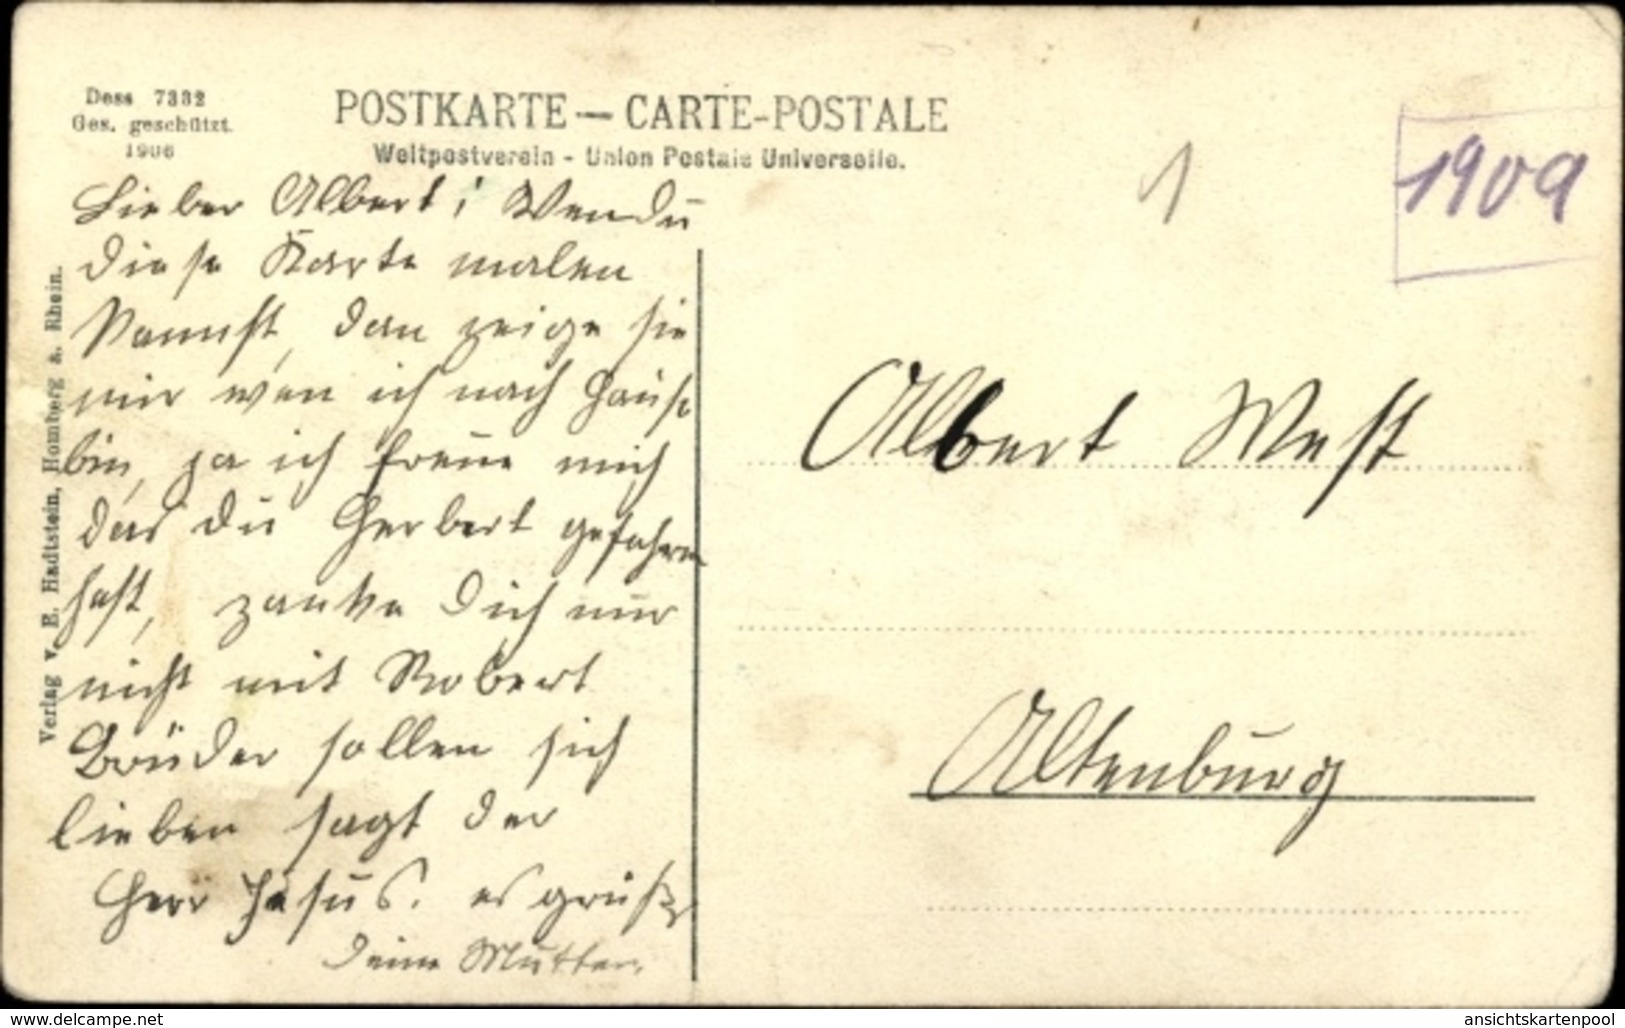 Dess 7332
Ges. geschützt.
1906
POSTKARTE — CARTE-POSTALE
Weltpostverein - Union Postale Universelle.
Verlag v. E. Hadtstein, Homberg a. Rhein.
Lieber Albert! Wen du
diese Karte malen
kannst, dan zeige sie
mir wen ich nach Hause
bin, ja ich freue mich
das du Herbert gefahren
hast, zanke dich nur
nicht mit Robert
Brüder sollen sich
lieben sagt der
Herr Jesus. es grüßt
deine Mutter.
1
1909
Albert West
Altenburg
www.delcampe.net
ansichtskartenpool